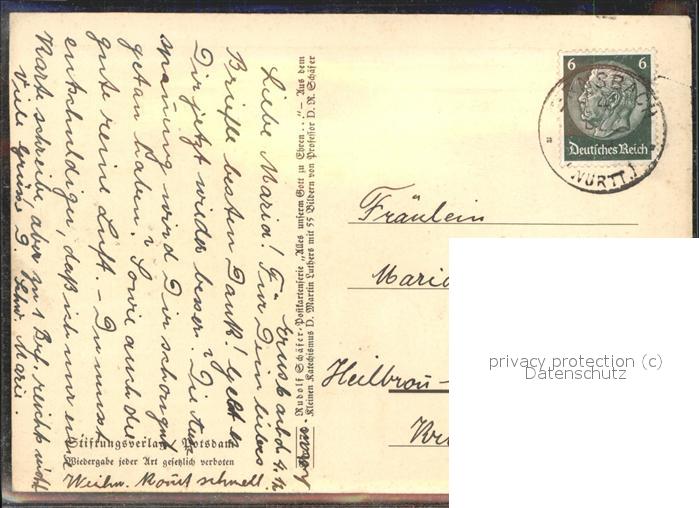 Ernsbach d. 4. 12.
Liebe Maria! Für Dein liebes
Briefle besten Dank! Geht es
Dir jetzt wieder besser? Die Aus-
spannung wird Dir schon gut
getan haben? Sowie auch die
gute reine Luft. – Du musst
entschuldigen, daß ich nur eine
Kart. schreibe, aber zu 1 Brf. reicht nicht
Viele Grüsse D. Schw. Marie.
Weihn. kommt schnell.
Rudolf Schäfer-Postkartenserie „Alles unserm Gott zu Ehren . .“ – Aus dem
Kleinen Katechismus D. Martin Luthers mit 55 Bildern von Professor D. R. Schäfer
Stiftungsverlag Potsdam
Wiedergabe jeder Art gesetzlich verboten
6 6
Deutsches Reich
(WÜRTT.)
Fräulein
Maria
Heilbronn-
privacy protection (c)
Datenschutz